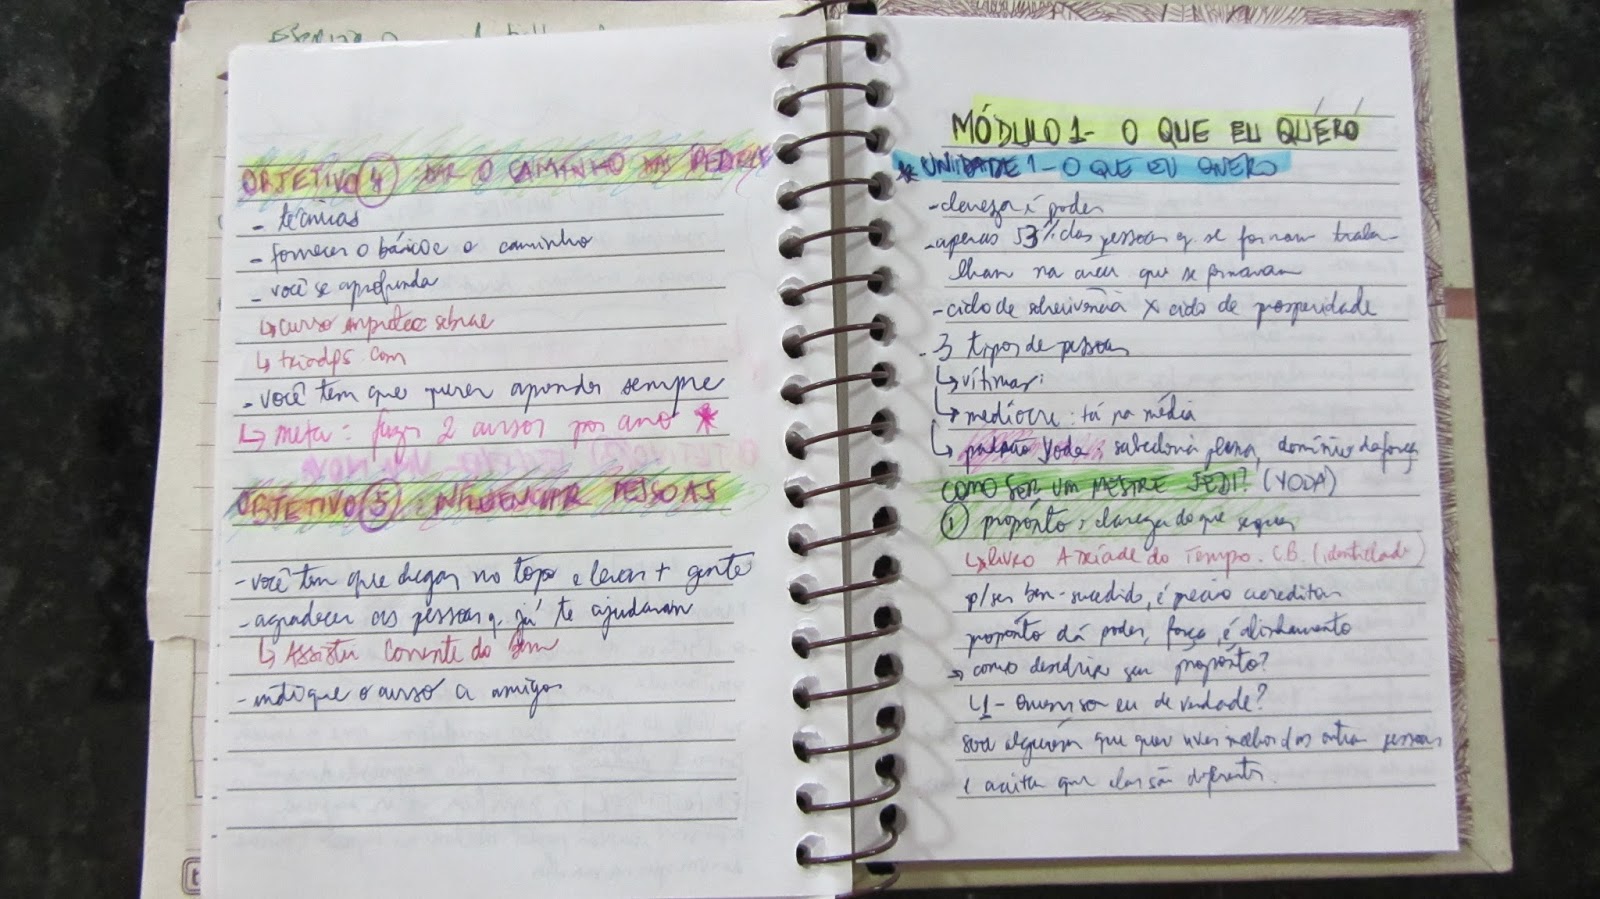 OBJETIVO (4) DAR O CAMINHO DAS PEDRAS
- técnicas
- fornecer o básico e o caminho
- você se aprofunda
↳ curso Anprotec sebrae
↳ triadps com
- você tem que querer aprender sempre
↳ meta: fazer 2 cursos por ano *
OBJETIVO (5): INFLUENCIAR PESSOAS
- você tem que chegar no topo e levar + gente
- agradecer as pessoas q. já te ajudaram
↳ Assistir Corrente do bem
- indique o curso a amigos
MÓDULO 1- O QUE EU QUERO
* UNIDADE 1 - O QUE EU QUERO
- clareza é poder
- apenas 53% das pessoas q. se formam traba-
lham na área que se formaram
- ciclo de sobrevivência X ciclo de prosperidade
- 3 tipos de pessoas
↳ vítimas:
↳ medíocre: tá na média
↳ padrão Yoda: sabedoria plena, domínio da força
COMO SER UM MESTRE JEDI? (YODA)
① propósito: clareza do que se quer
↳ livro A Tríade do Tempo. C.B. (identidade)
p/ ser bem-sucedido, é preciso acreditar
propósito dá poder, força, é alinhamento
→ como descobrir seu propósito?
1 - Quem sou eu de verdade?
sou alguém que quer viver melhor das outras pessoas
e aceita que elas são diferentes.